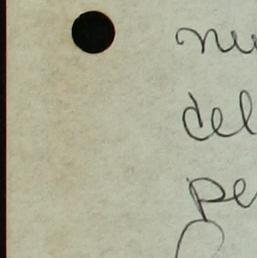 nu
del
pe